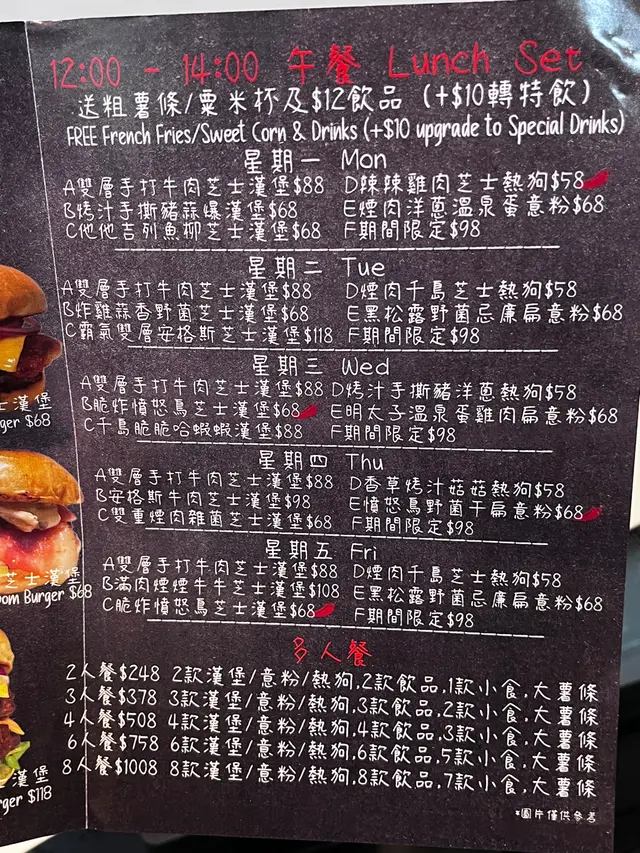 12:00 - 14:00 午餐 Lunch Set
送粗薯條/粟米杯及$12飲品 (+$10轉特飲)
FREE French Fries/Sweet Corn & Drinks (+$10 upgrade to Special Drinks)
星期一 Mon
A雙層手打牛肉芝士漢堡$88 D辣辣雞肉芝士熱狗$58
B烤汁手撕豬蒜爆漢堡$68 E煙肉洋蔥溫泉蛋意粉$68
C他他吉列魚柳芝士漢堡$68 F期間限定$98
星期二 Tue
A雙層手打牛肉芝士漢堡$88 D煙肉千島芝士熱狗$58
B炸雞蒜香野菌芝士漢堡$68 E黑松露野菌忌廉扁意粉$68
C霸氣雙層安格斯芝士漢堡$118 F期間限定$98
星期三 Wed
A雙層手打牛肉芝士漢堡$88 D烤汁手撕豬洋蔥熱狗$58
B脆炸憤怒鳥芝士漢堡$68 E明太子溫泉蛋雞肉扁意粉$68
C千島脆脆哈蝦蝦漢堡$88 F期間限定$98
星期四 Thu
A雙層手打牛肉芝士漢堡$88 D香草烤汁菇菇熱狗$58
B安格斯牛肉芝士漢堡$98 E憤怒鳥野菌干扁意粉$68
C雙重煙肉雜菌芝士漢堡$68 F期間限定$98
星期五 Fri
A雙層手打牛肉芝士漢堡$88 D煙肉千島芝士熱狗$58
B滿肉煙煙牛牛芝士漢堡$108 E黑松露野菌忌廉扁意粉$68
C脆炸憤怒鳥芝士漢堡$68 F期間限定$98
多人餐
2人餐$248 2款漢堡/意粉/熱狗,2款飲品,1款小食,大薯條
3人餐$378 3款漢堡/意粉/熱狗,3款飲品,2款小食,大薯條
4人餐$508 4款漢堡/意粉/熱狗,4款飲品,3款小食,大薯條
6人餐$758 6款漢堡/意粉/熱狗,6款飲品,5款小食,大薯條
8人餐$1008 8款漢堡/意粉/熱狗,8款飲品,7款小食,大薯條
*圖片僅供參考
士漢堡
ger $68
芝士漢堡
oom Burger $68
漢堡
rger $118